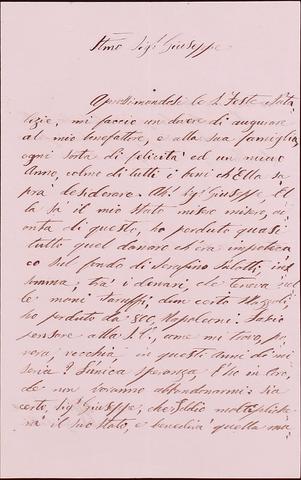 Ilmo Sigr Giuseppe
Aprossimandosi le S. Feste Nata
lizie, mi faccio un dovere di augurare
al mio benefattore, e alla sua famiglia
ogni sorta di felicità ed un nuovo
Anno, colmo di tutti i beni ch'Ella sa
prà desiderare. Ah! Sigr Giuseppe, El
la sà il mio stato misero misero, ad
onta di questo, ho perduto quasi
tutto quel danaro ch'era
sul fondo di Serafino Salatti, in
somma, trà i denari, che teneva nel
le mani
ho perduto da 300 Napoleoni. Lascio
pensare alla S. V., come mi trovo, po
vera, vecchia, in questi anni di mi
seria? L'unica speranza, E' in Loro,
che non voranno abbandonarmi: sia
certo, Sigr Giuseppe, che Iddio moltepliche
rà il suo stato, e benedirà quella ma